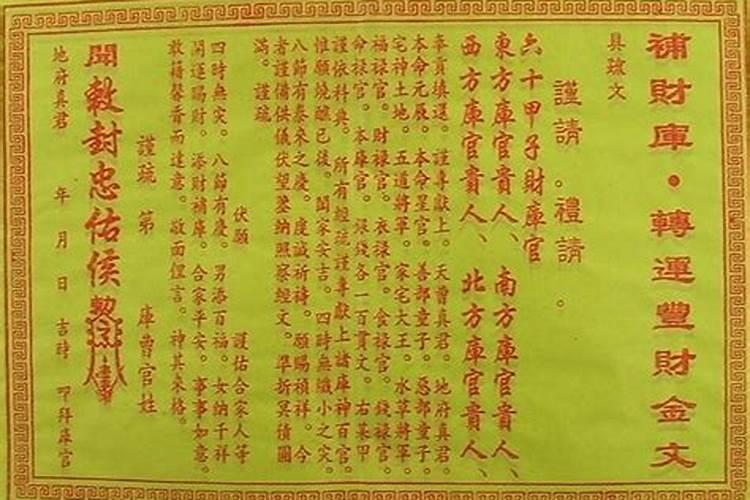 補財庫·轉運豐財金文
具疏文
謹請。禮請。
六十甲子財庫官
東方庫官貴人、南方庫官貴人、
西方庫官貴人、北方庫官貴人、
奉貢填還。謹專獻上。天曹真君。地府真君。
本命元辰。本命星官。善部童子。惡部童子。
宅神土地。五道將軍。家宅大王。水草將軍。
福祿官。財祿官。衣祿官。食祿官。錢祿官。
命祿官。本庫官。銀錢各一百貫文。右某甲
謹依科典。所有經疏謹專獻上諸庫神百官。
惟願燒醮已後。闔家安吉。四時無纖小之災。
八節有泰來之慶。虔誠祈禱。願賜禎祥。今
者謹備供儀伏望鑒納照察經文。準折冥債圓
滿。謹疏。
伏願 護佑合家人等
四時無災。八節有慶。男添百福。女納千祥
開運賜財。添財補庫。合家平安。事事如意。
敢藉馨香而達意。敬面俚言。神其來格。
謹疏 第 庫曹官姓
聞敕封忠佑侯
地府真君 年 月 日 吉時 叩拜庫官